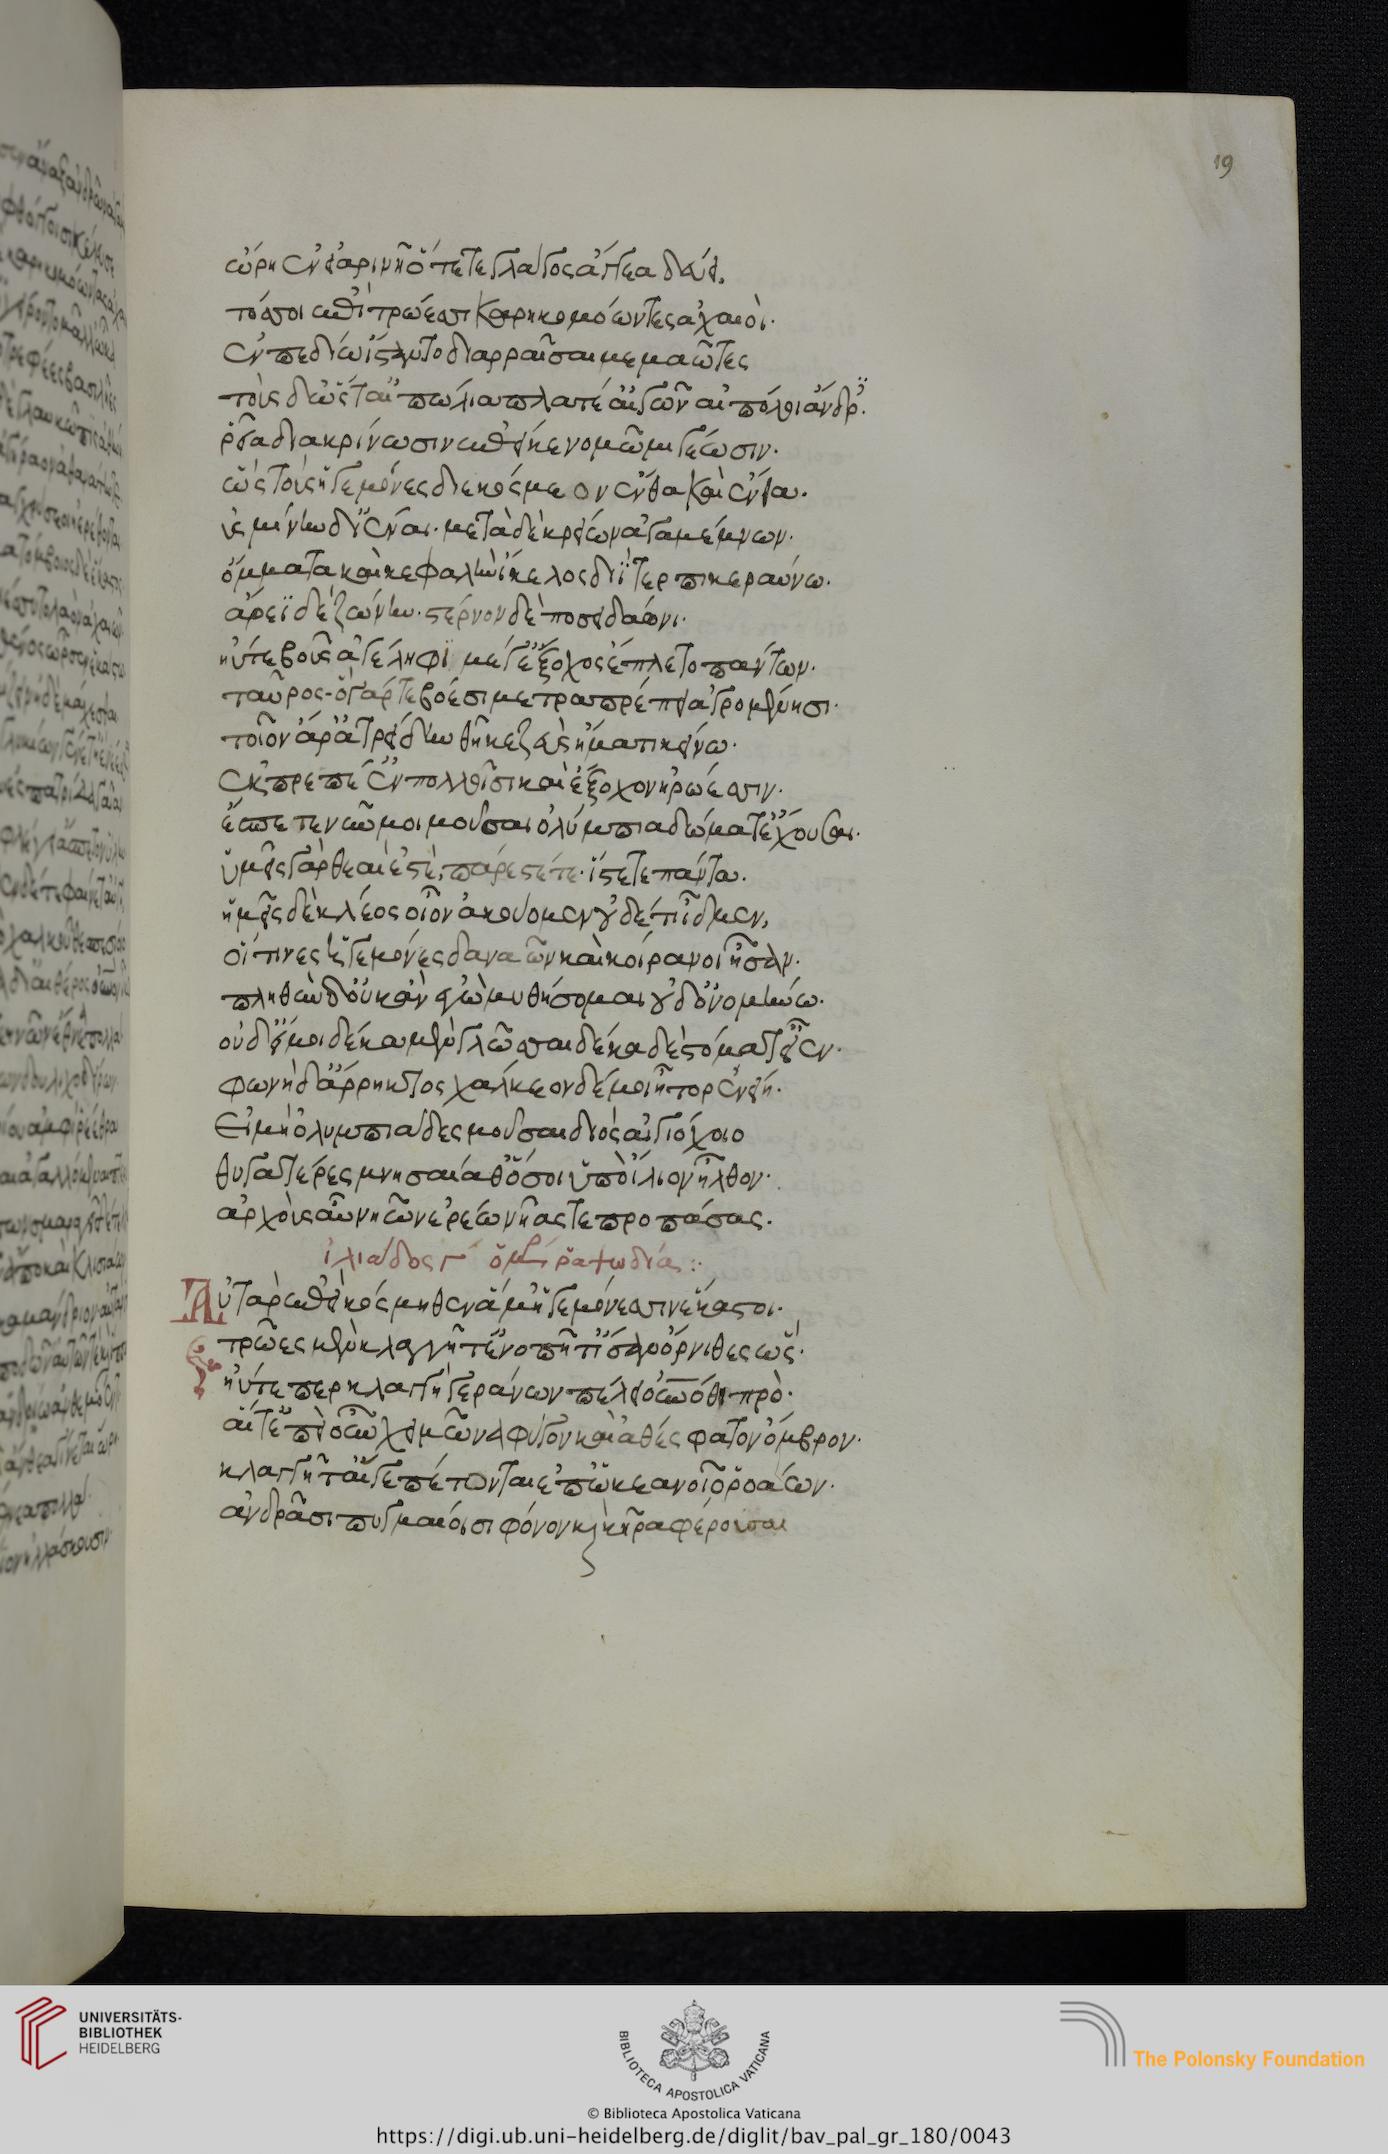 19
ὥρη ἐν εἰαρινῆ ὅτε τε γλάγος ἄγγεα δεύει,
τόσσοι ἐπὶ τρώεσσι καρηκομόωντες ἀχαιοὶ·
ἐν πεδίω ἵσταντο διαρραῖσαι μεμαῶτες
τοὺς δ' ὥστ' αἰπόλια πλατέ' αἰγῶν αἰπόλοι ἄνδρες·
ῥεῖα διακρίνωσιν ἐπεί κε νομῶ μιγέωσιν·
ὣς τοὺς ἡγεμόνες διεκόσμεον ἔνθα καὶ ἔνθα·
ὑσμίνην δ' ἰέναι· μετὰ δὲ κρείων ἀγαμέμνων·
ὄμματα καὶ κεφαλὴν ἴκελος διῒ τερπικεραύνω·
ἄρεϊ δὲ ζώνην· στέρνον δὲ ποσειδάωνι·
ἠύτε βοῦς ἀγέληφι μέγ' ἔξοχος ἔπλετο πάντων·
ταῦρος· ὁ γάρ τε βόεσι μεταπρέπει ἀγρομένησι·
τοῖον ἄρ' ἀτρείδην θῆκε ζεὺς ἤματι κείνω·
ἐκπρεπέ' ἐν πολλοῖσι καὶ ἔξοχον ἡρώεσσιν·
ἔσπετε νῦν μοι μοῦσαι ὀλύμπια δώματ' ἔχουσαι·
ὑμεῖς γὰρ θεαί ἐστὲ, πάρεστέ τε· ἴστε τε πάντα·
ἡμεῖς δὲ κλέος οἶον ἀκούομεν οὐδέ τι ἴδμεν,
οἵτινες ἡγεμόνες δαναῶν καὶ κοίρανοι ἦσαν·
πληθὺν δ' οὐκ ἂν ἐγὼ μυθήσομαι οὐδ' ὀνομήνω·
οὐδ' εἴ μοι δέκα μὲν γλῶσσαι δέκα δὲ στόματ' εἶεν·
φωνὴ δ' ἄρρηκτος χάλκεον δέ μοι ἦτορ ἐνείη·
Εἰ μὴ ὀλυμπιάδες μοῦσαι διὸς αἰγιόχοιο
θυγατέρες μνησαίαθ' ὅσοι ὑπὸ ἴλιον ἦλθον·
ἀρχοὺς αὖ νηῶν ἐρέω νῆάς τε προπάσας·
ἰλιάδος γ ὁμήρου ῥαψωδίας:
Αὐτὰρ ἐπεὶ κόσμηθεν ἅμ' ἡγεμόνεσσιν ἕκαστοι·
τρῶες μὲν κλαγγῆ τ' ἐνοπῆ τ' ἴσαν ὄρνιθες ὥς·
ἠύτε περ κλαγγὴ γεράνων πέλει οὐρανόθι πρὸ·
αἵτ' ἐπεὶ οὖν χειμῶνα φύγον καὶ ἀθέσφατον ὄμβρον·
κλαγγῆ ταί γε πέτονται ἐπ' ὠκεανοῖο ῥοάων·
ἀνδράσι πυγμαίοισι φόνον καὶ κῆρα φέρουσαι
UNIVERSITÄTS-
BIBLIOTHEK
HEIDELBERG
BIBLIOTECA APOSTOLICA VATICANA
The Polonsky Foundation
© Biblioteca Apostolica Vaticana
https://digi.ub.uni-heidelberg.de/diglit/bav_pal_gr_180/0043